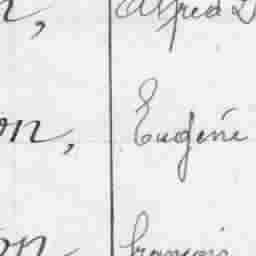 Alfred
on, Eugène
on François